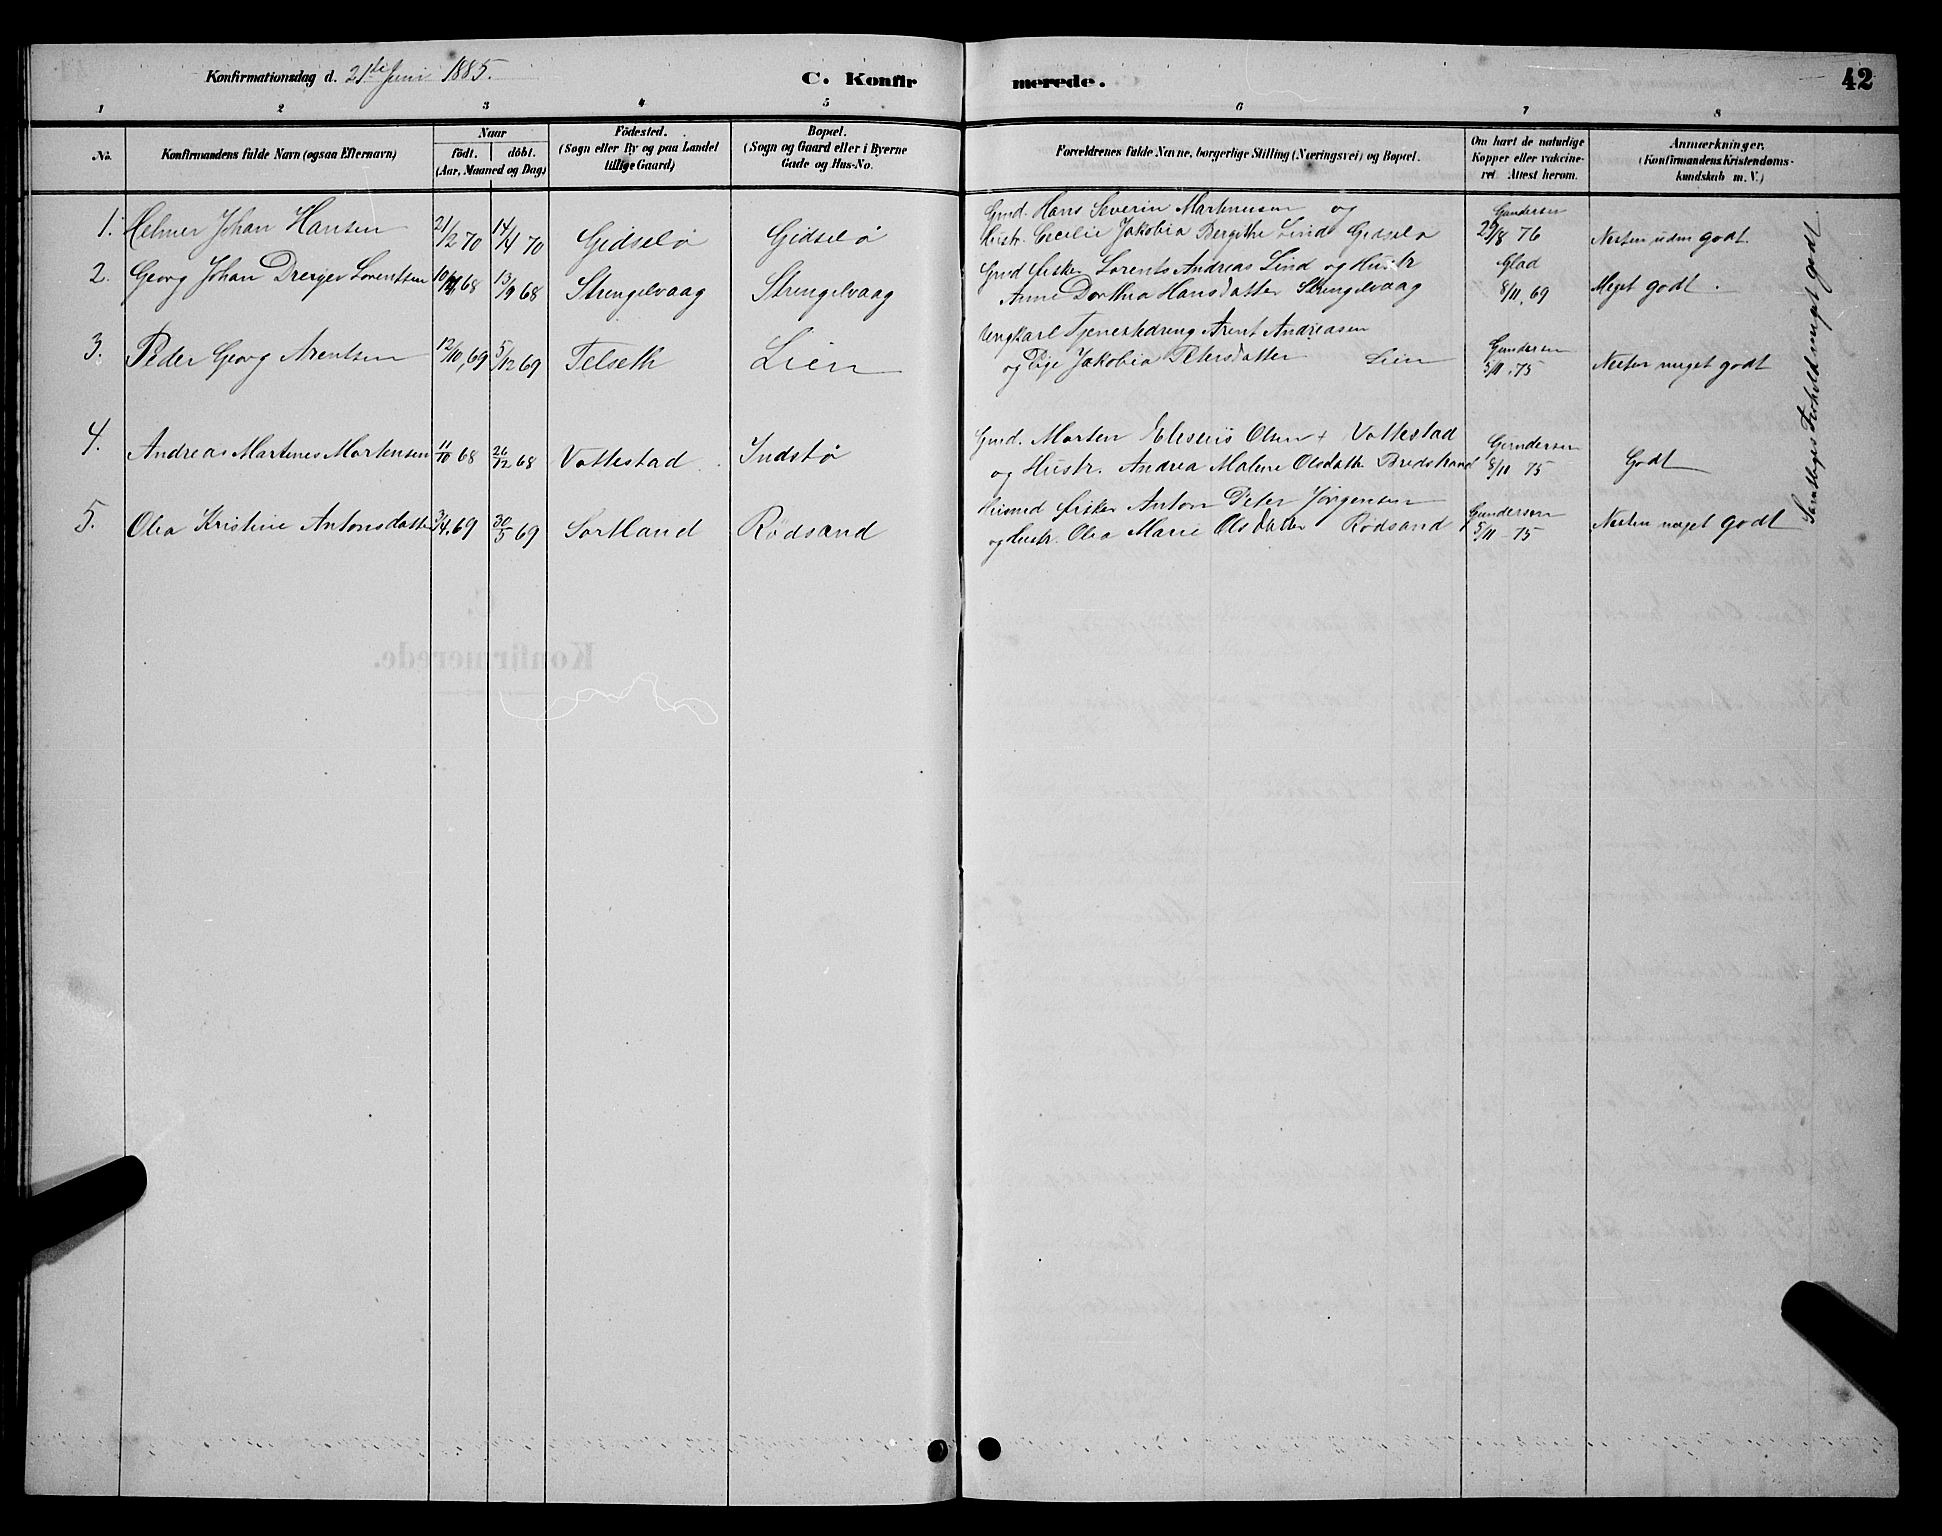 Konfirmationsdag d. 21de Juni 1885.
C. Konfirmerede.
42
1 2 3 4 5 6 7 8
No.
Konfirmandens fulde Navn (ogsaa Efternavn)
Naar
födt. döbt.
(Aar, Maaned og Dag)
Födested.
(Sogn eller By og paa Landet
tillige Gaard)
Bopæl.
(Sogn og Gaard eller i Byerne
Gade og Hus-No.
Forældrenes fulde Navne, borgerlige Stilling (Næringsvei) og Bopæl.
Om havt de naturlige
Kopper eller vakcine-
ret. Attest herom.
Anmærkninger.
(Konfirmandens Kristendoms-
kundskab m. V.)
1. Helmer Johan Hansen 21/2 70 14/4 70 Gidselø Gidselø
Gmd. Hans Severin Martinusen og
Hustr. Cecilie Jakobia Bergithe Lind Gidselø
Gundersen
29/8 76
Nesten uden godt.
2. Georg Johan Dreyer Lorentsen 68 13/9 68 Strengelvaag Strengelvaag
Gmd Fisker Lorents Andreas Lind og Hustr
Anne Dorthea Hansdatter Strengelvaag
Glad
8/11, 69
Meget godt.
3. Peder Georg Arentsen 12/10, 69 5/12 69 Telseth Lien
Ungkarl Tjenestedreng Arent Andreasen
og Pige Jakobia Petersdatter Lien
Gundersen
5/11. 75
Nesten meget godt
4. Andreas Martines Mortensen 11/10 68 26/12 68 Vottestad Indstø
Gmd. Morten Eliseus Olsen Vottestad
og Hustr. Andrea Malene Olsdatter Bredstrand
Gundersen
8/11 75
Godt
5. Olea Kristine Antonsdatter 3/4 69 30/5 69 Sortland Rödsand
Fisker Anton Peter Jörgensen
og Hustr. Olea Marie Olsdatter Rödsand
Gundersen
5/11 - 75
Nesten meget godt
Samtliges Forhold meget godt.
Konfirmerede.